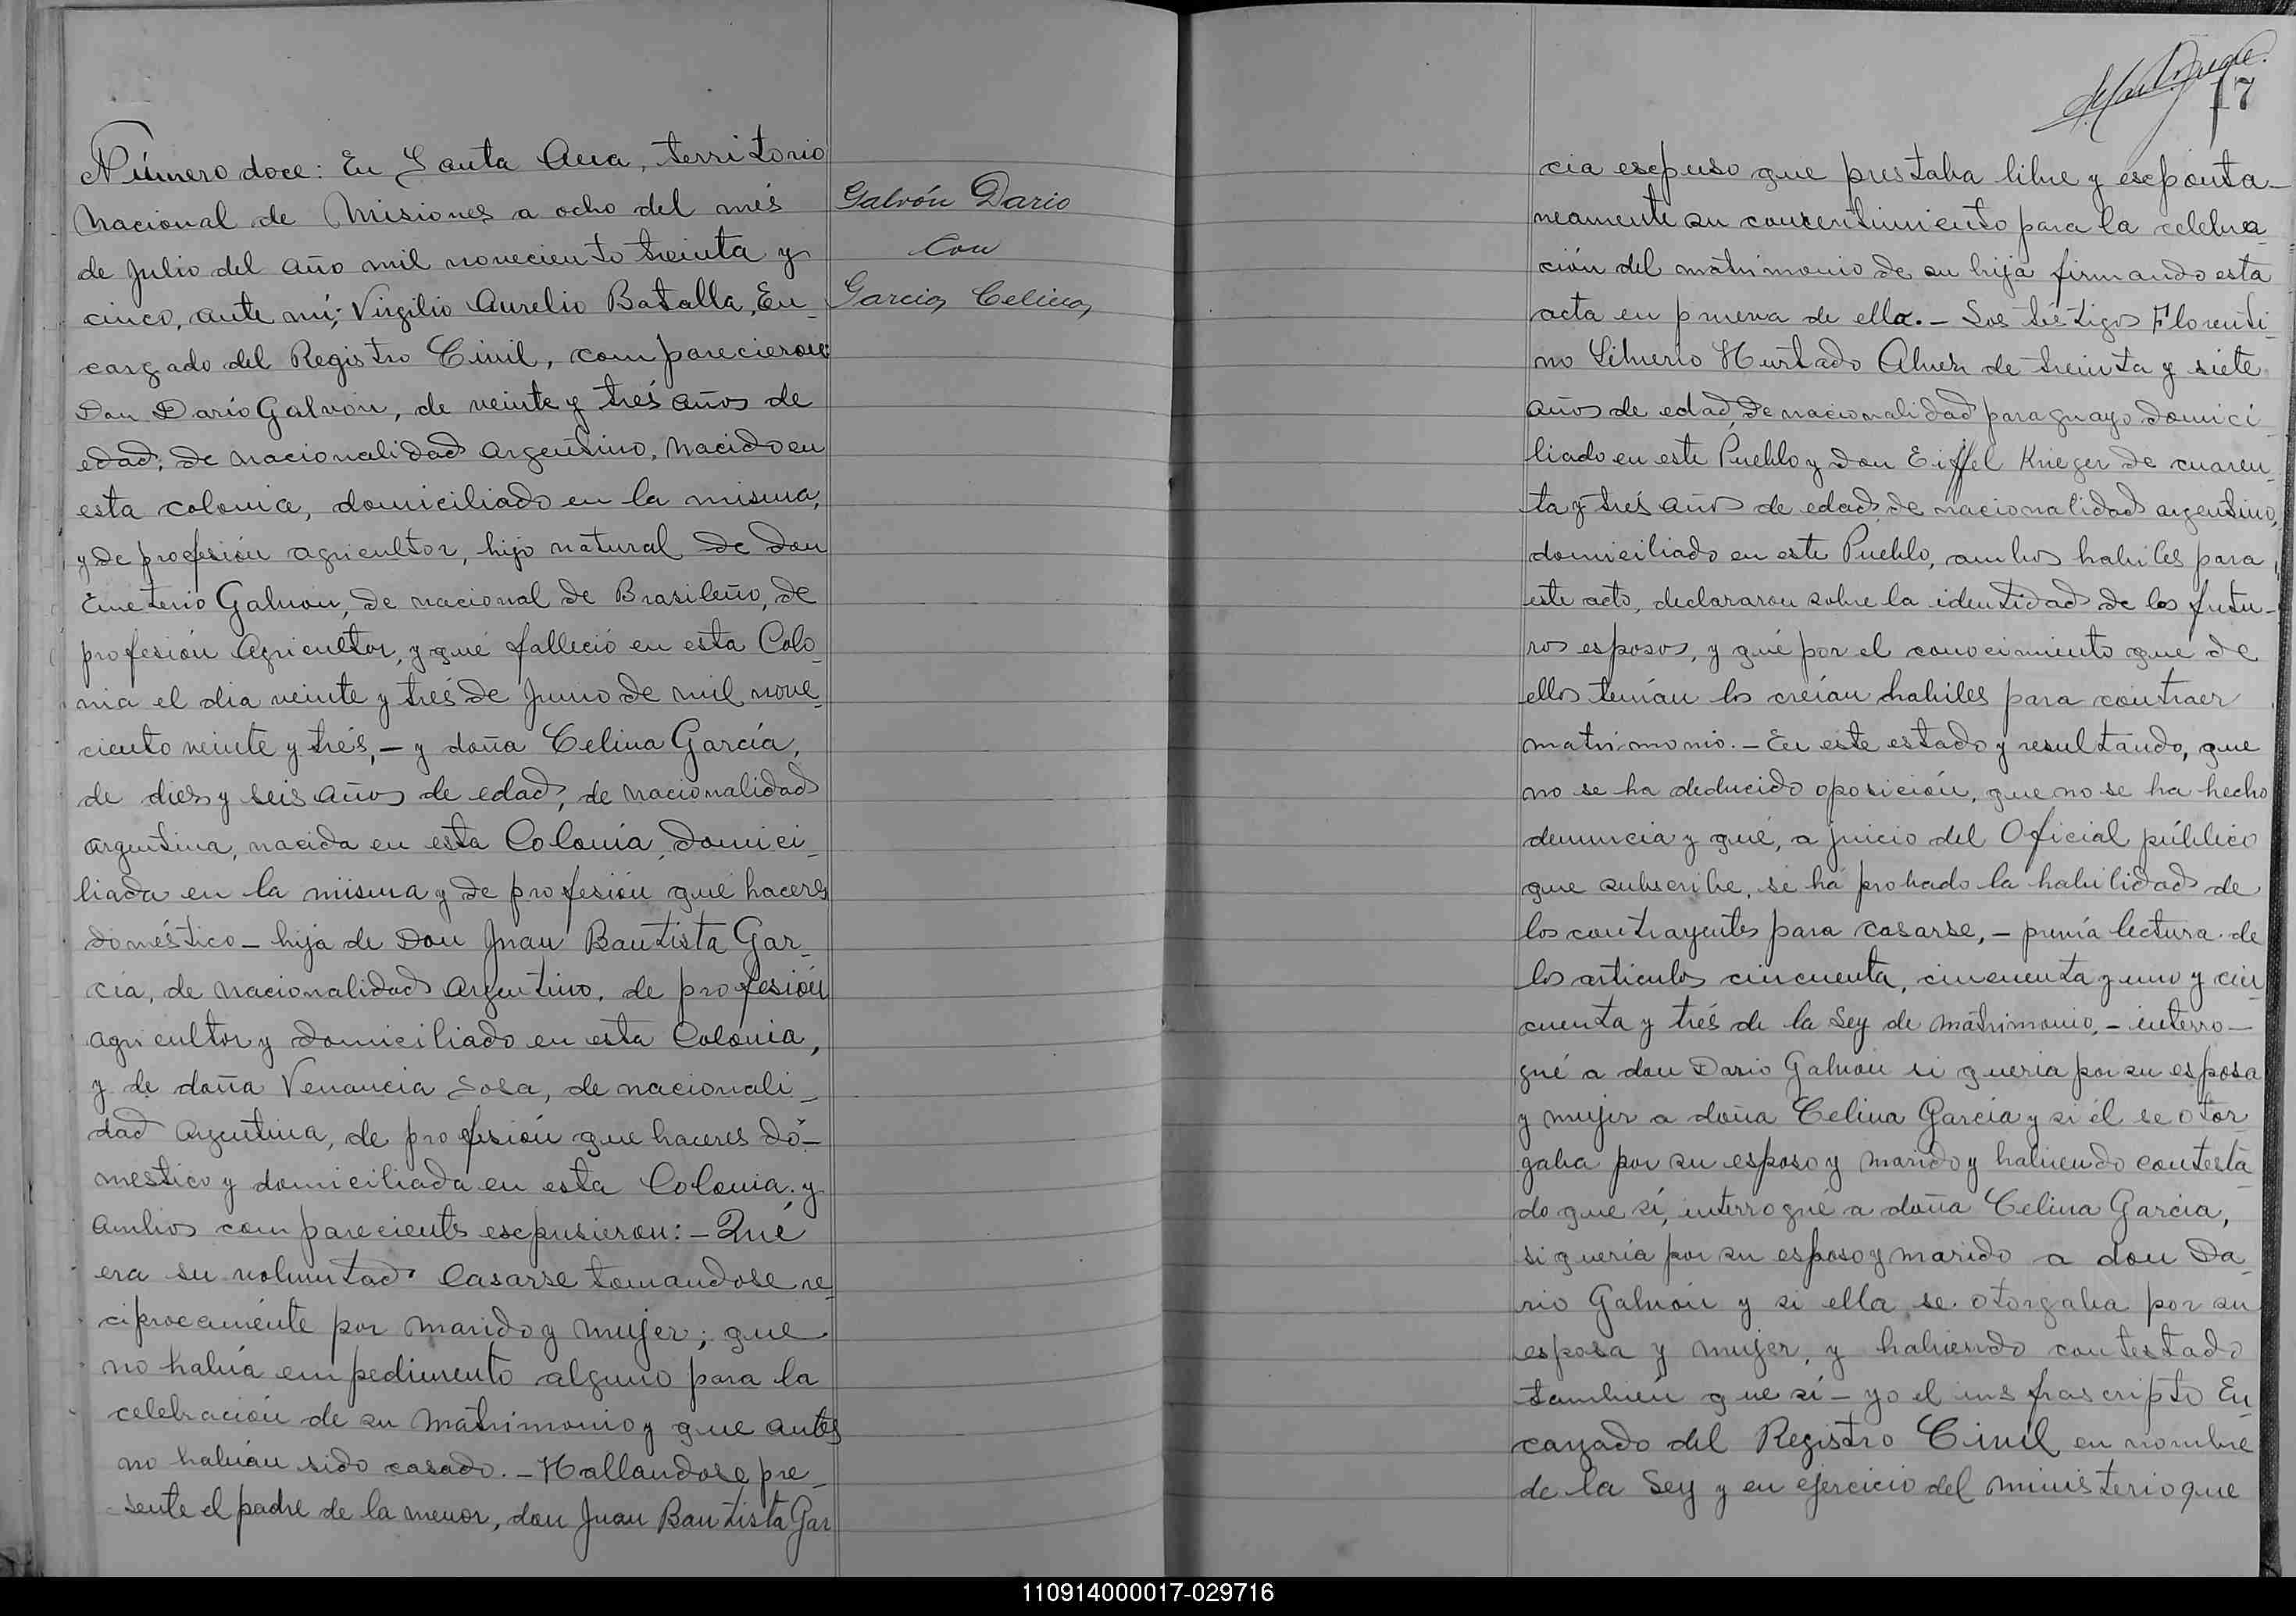 Número doce: En Santa Ana, territorio
Nacional de Misiones a ocho del més
de Julio del año mil noveciento treinta y
cinco, ante mí; Virgilio Aurelio Batalla, En_
cargado del Registro Civil, comparecieron
Don Darío Galvón, de veinte y trés años de
edad, de nacionalidad argentino, nacido en
esta colonia, domiciliado en la misma,
y de profesión agricultor, hijo natural de don
Emeterio Galvon, de nacional de Brasileño, de
profesión Agricultor, y qué falleció en esta Colo_
nia el dia veinte y trés de Junio de mil nove_
ciento veinte y trés,- y doña Celina García,
de diez y seis años de edad, de nacionalidad
argentina, nacida en esta Colonia, domici_
liada en la misma y de profesión qué haceres
doméstico - hija de Don Juan Bautista Gar_
cía, de nacionalidad Argentino, de profesión
agricultor y domiciliado en esta Colonia,
y de doña Venancia Sosa, de nacionali_
dad Argentina, de profesión que haceres do-
mestico y domiciliada en esta Colonia. y
ambos comparecientes escpusieron:- Qué
era su voluntad casarse tomandose re_
ciprocaménte por marido y mujer; que
no había empedimento alguno para la
celebración de su matrimonio y que antes
no habían sido casado. - Hallandose pre_
sente el padre de la menor, don Juan Bautista Gar
Galvón Dario
con
Garcia, Celina,
17
cia escpuso que prestaba libre y escpónta-
neamente su concentimiento para la celebra_
ción del matrimonio de su hija firmando esta
acta en prueva de ella. - Los téstigos Florenti_
no Liberio Hurtado Alvez de treinta y siete
años de edad, de nacionalidad paraguayo domici_
liado en este Pueblo y don Eiffel Krieger de cuaren_
ta y trés años de edad, de nacionalidad argentino,
domiciliado en este Pueblo, ambos habiles para
este acto, declararon sobre la identidad de los futu-
ros esposos, y qué por el conocimiento que de
ellos tenían los creían habiles para contraer
matrimonio. - En este estado y resultando, que
no se ha deducido oposición, que no se ha hecho
denuncia y qué, a juicio del Oficial público
que subscribe, se há probado la habilidad de
los contrayentes para casarse, - previa lectura de
los articulos cincuenta, cincuenta y uno y cin
cuenta y trés de la Ley de Mátrimonio, - interro-
gué a don Dario Galvon si queria por su esposa
y mujer a doña Celina García y si él se otor
gaba por su esposo y marido y habiendo contesta_
do que sí, interrogué a doña Celina Garcia,
si quería por su esposo y marido a don Da_
rio Galvón y si ella se otorgaba por su
esposa y mujer, y habiendo contestado
también que sí - yo el insfrascripto En_
cargado del Registro Civil en nombre
de la Ley y en ejercicio del ministerio que
110914000017-029716